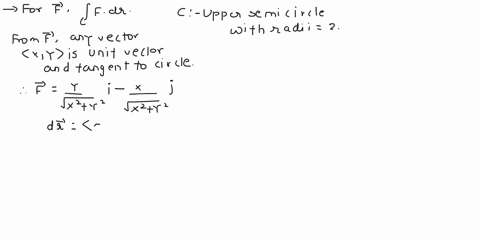 → For F⃗, ∫_C F⃗.dr. C:- Upper semicircle
with radii = 2.
From F⃗, any vector
<x,Y> is unit vector
and tangent to circle.
∴ F⃗ = Y/√(x²+Y²) i − x/√(x²+Y²) j
dr⃗ = <